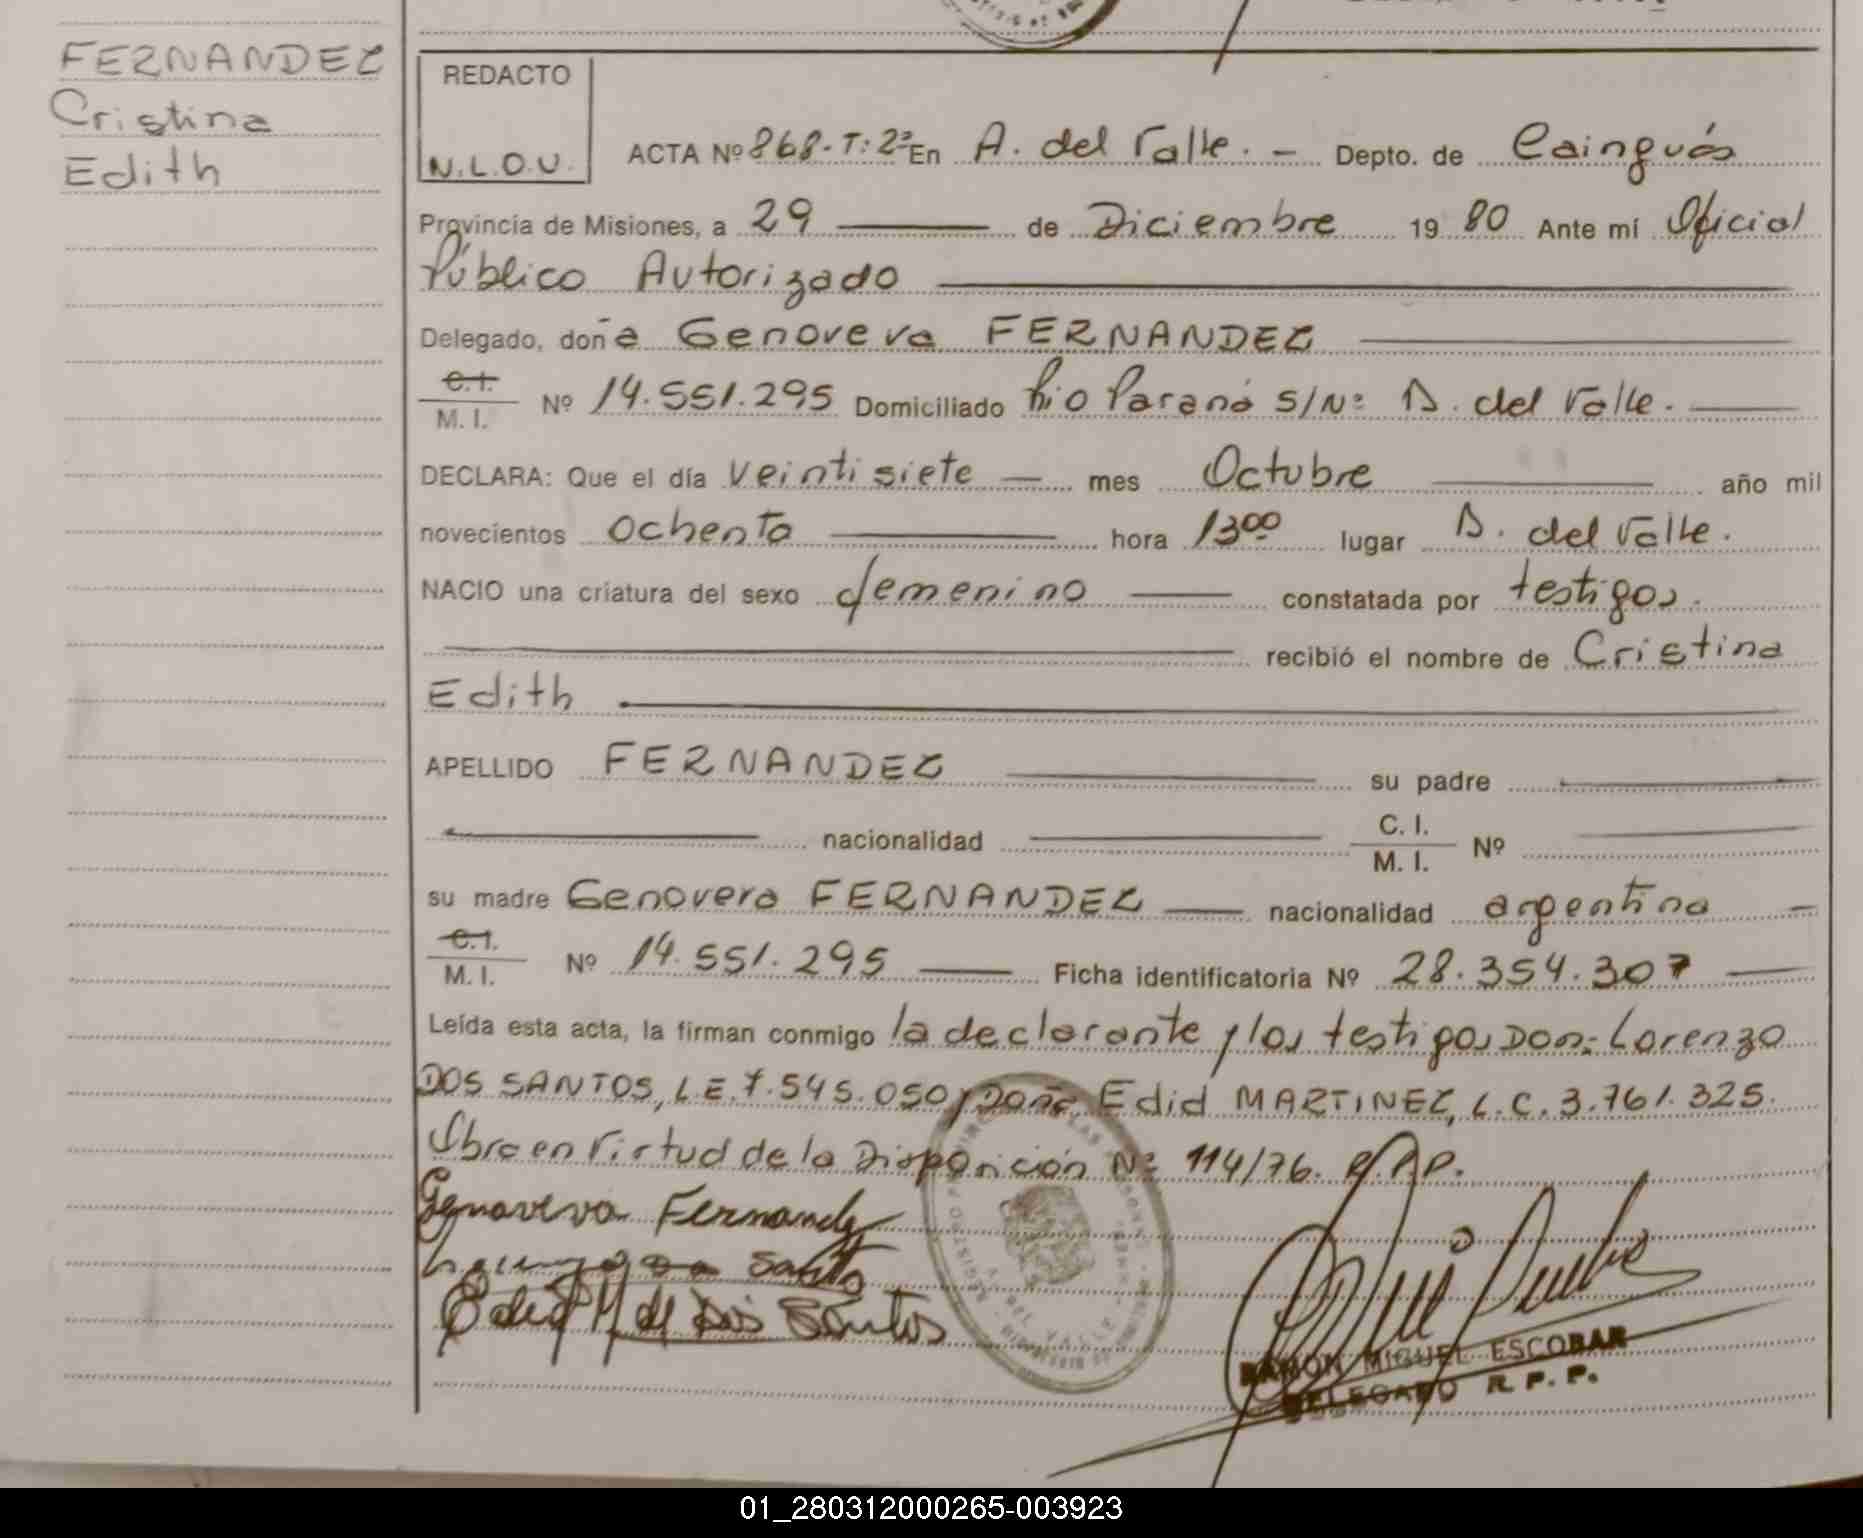 FERNANDEZ
Cristina
Edith
REDACTO
N.L.O.U.
ACTA Nº 868-T:2º En A. del Valle. - Depto. de Cainguás
Provincia de Misiones, a 29 de Diciembre 19 80 Ante mí Oficial
Público Autorizado
Delegado, doña Genoveva FERNANDEZ
C.I. M.I. Nº 14.551.295 Domiciliado Rio Paraná S/Nº A. del Valle.
DECLARA: Que el día veintisiete mes Octubre año mil
novecientos ochenta hora 13 00 lugar A. del Valle.
NACIO una criatura del sexo femenino constatada por testigos.
recibió el nombre de Cristina
Edith
APELLIDO FERNANDEZ su padre
nacionalidad C.I. M.I. Nº
su madre Genoveva FERNANDEZ nacionalidad argentina
C.I. M.I. Nº 14.551.295 Ficha identificatoria Nº 28.354.307
Leída esta acta, la firman conmigo la declarante y los testigos Don: Lorenzo
DOS SANTOS, L.E.7.545.050 y Doña Edid MARTINEZ, L.C.3.761.325.
Obra en Virtud de la Disposición Nº 114/76. R.P.P.
Genoveva Fernandez
Santos
de Dos Santos
RAMON MIGUEL ESCOBAR
DELEGADO R.P.P.
01_280312000265-003923